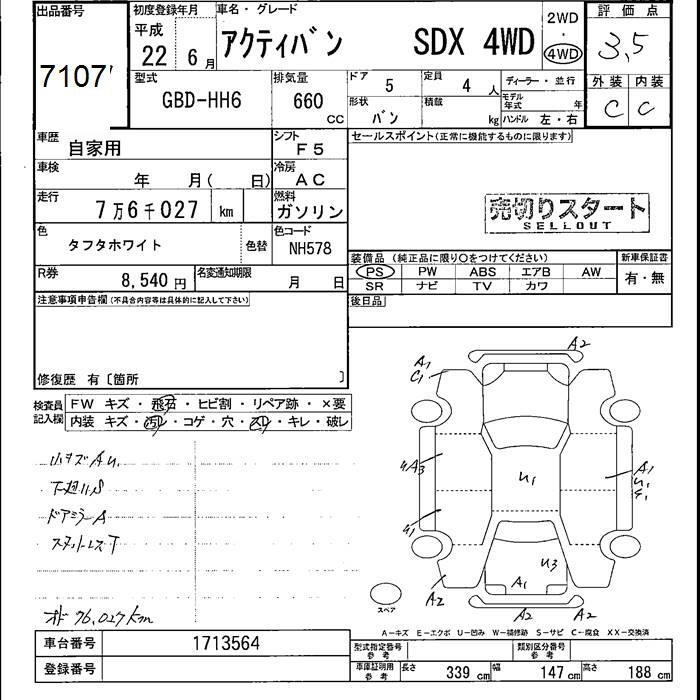 出品番号
7107
初度登録年月
平成
22 6月
車名・グレード
アクティバン SDX 4WD
2WD
・
4WD
評価点
3,5
外装 内装
C C
型式
GBD-HH6
排気量
660
CC
ドア 5
定員 4 人
形状 バン
積載 kg
ディーラー・並行
モデル年式 年
ハンドル 左・右
車歴 自家用
シフト F5
セールスポイント(正常に機能するものに限ります)
車検 年 月( 日)
冷房 AC
走行 7万6千027 km
燃料 ガソリン
売切りスタート
SELLOUT
色 タフタホワイト 色替
色コード NH578
装備品 (純正品に限り○をつけてください)
新車保証書
PS PW ABS エアB AW
SR ナビ TV カワ
有・無
R券 8,540円
名変通知期限 月 日
後日品
注意事項申告欄(不具合内容等は具体的に記入して下さい)
修復歴 有〔箇所 〕
検査員記入欄
FW キズ・飛石・ヒビ割・リペア跡・×要
内装 キズ・汚レ・コゲ・穴・スレ・キレ・破レ
小キズAU
下廻りS
ドアミラーA
ステップ
オド 76,027km
A2
A1
C1
A1
U1
U1
U3
A1
A2
A2
A2
スペア
A-キズ E-エクボ U-凹み W-補修跡 S-サビ C-腐食 XX-交換済
車台番号 1713564
登録番号
型式指定番号
参考
類別区分番号
参考
車庫証明用
参考
長さ 339 cm 幅 147 cm 高さ 188 cm